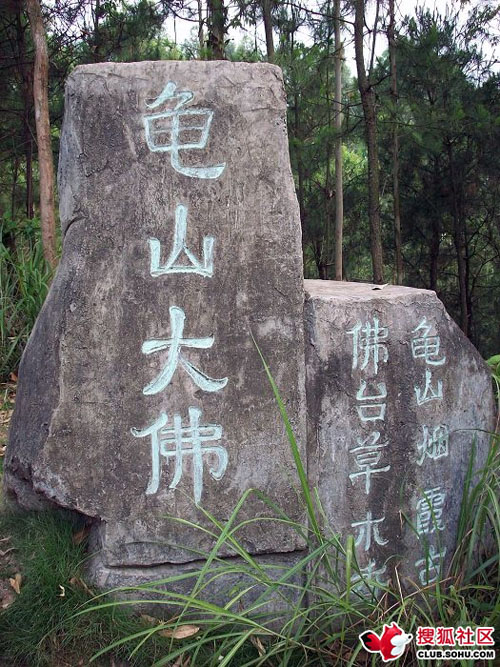 龟山大佛
龟山烟霞古
佛台草木
搜狐社区
CLUB.SOHU.COM